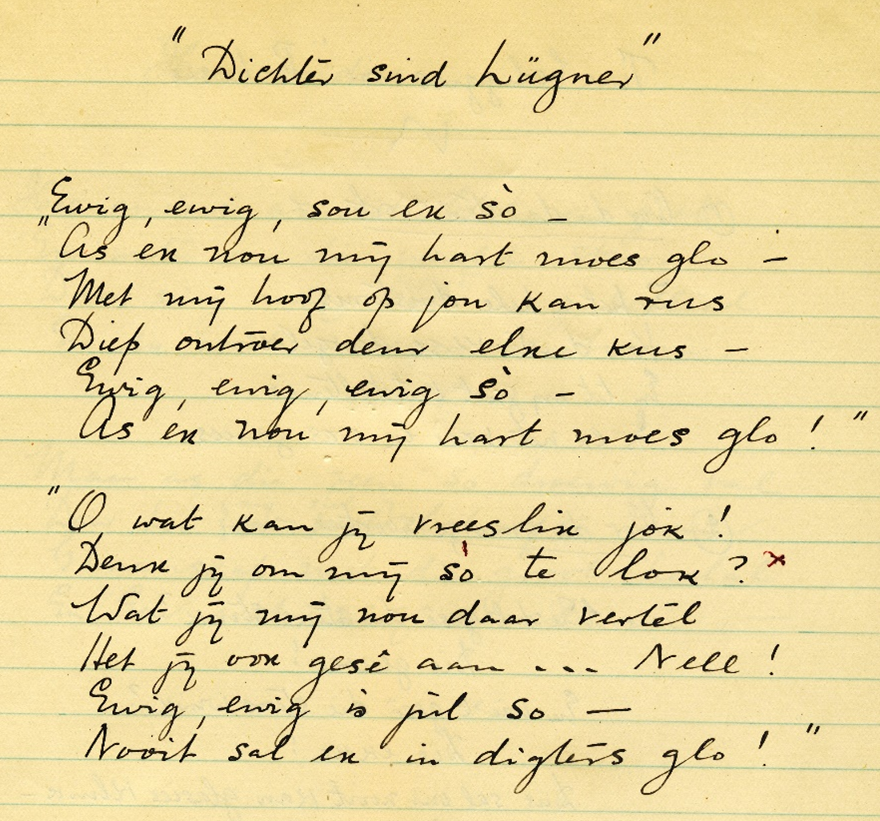 "Dichter sind Lügner"
"Ewig, ewig, sou ek sò –
As ek nou my hart moes glo –
Met my hoof op jou kan rus
Diep ontroer deur elke kus –
Ewig, ewig, ewig sò –
As ek nou my hart moes glo!"
"O wat kan jy vreeslik jok!
Denk jy om my só te lok? x
Wat jy my nou daar vertel
Het jy ook gesê aan ... Nell!
Ewig, ewig is jul so —
Nooit sal ek in digters glo!"